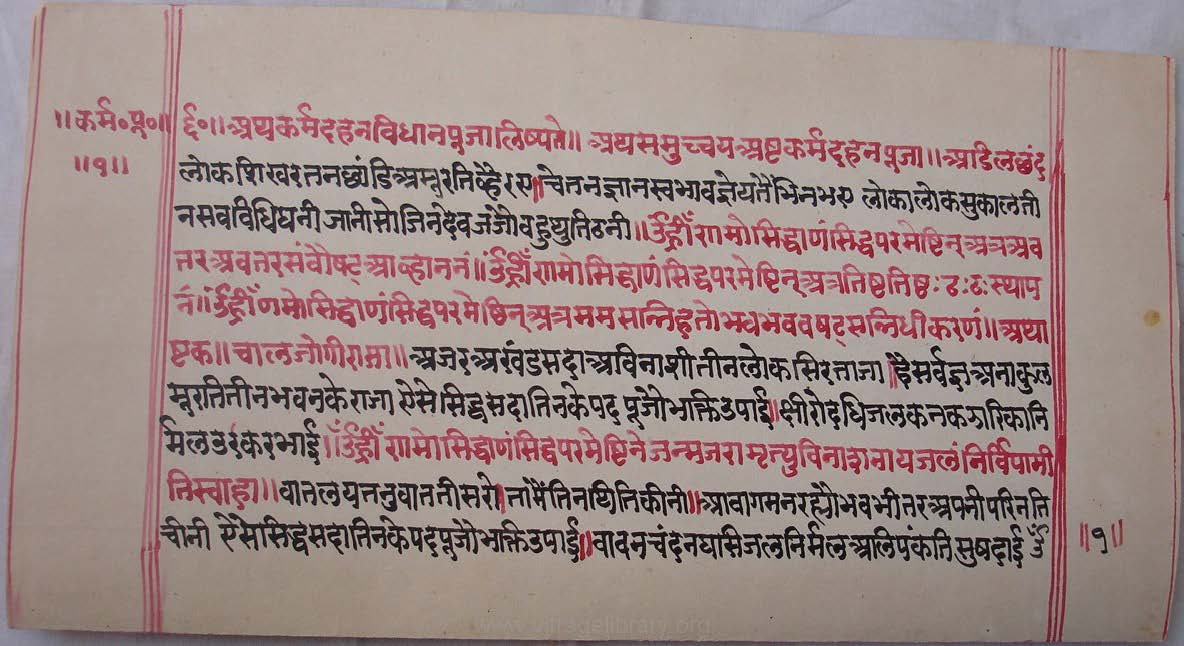 ॥कर्म॰पू॰॥
॥१॥
ई॰॥अथकर्मदहनविधानपूजालिष्यते॥ अथसमुच्चयअष्टकर्मदहनपूजा॥अडिलछंद
लोकशिखरतनछांडिअमूरतिव्हैरए॥चेतनज्ञानस्वभावज्ञेयतैंभिनभए लोकालोकसुकालती
नसवविधिघनी जानीसोजिनदेवजजोंवहुथुतिठनी॥ॐह्रींणमोसिद्धाणंसिद्धपरमेष्टिन्अत्रअव
तरअवतरसंवौष्ट्आव्हाननं॥ॐह्रींणमोसिद्धाणंसिद्धपरमेष्टिन्अत्रतिष्ठतिष्ठःठःठःस्थाप
नं॥ॐह्रींणमोसिद्धाणंसिद्धपरमेष्ठिन्अत्रममसन्निहतोभवभववषट्सन्निधीकरणं॥अथा
ष्टक॥चालजोगीरासा॥अजरअखंडसदाअविनाशीतीनलोकसिरताजा॥हैसर्वज्ञअनाकुल
मूरतितीनभवनकेराजा ऐसेसिद्धसदातिनकेपदपूजोंभक्तिउपाई॥क्षीरोदधिजलकनकझारिकानि
र्मलउरकरभाई॥ॐह्रींणमोसिद्धाणंसिद्धपरमेष्टिनेजन्मजरामृत्युविनाशनायजलंनिर्विपामी
तिस्वाहा॥वातलयतनुवाततीसरोतामैंतिनथितिकीनी॥आवागमनरह्योभवभीतरअपनीपरिनति
चीनी ऐसेसिद्धसदातिनकेपदपूजोंभक्तिउपाई॥वावनचंदनघासिजलनिर्मलअलिपंकतिसुषदाई ॐ
॥१॥
www.vitragelibrary.org